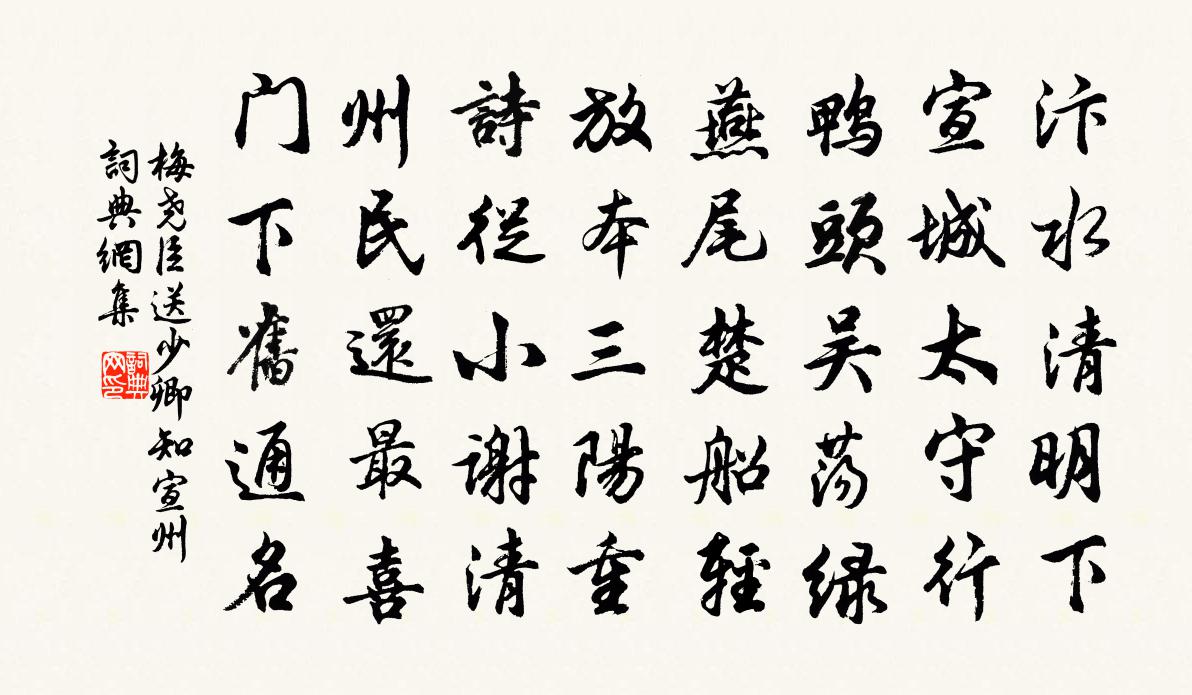 汴水清明下
宣城太守行
鸭頭吴荡绿
燕尾楚船輕
放本三陽重
詩從小謝清
州民還最喜
门下舊通名
梅尧臣送少卿知宣州
詞典網集
詞典
网印